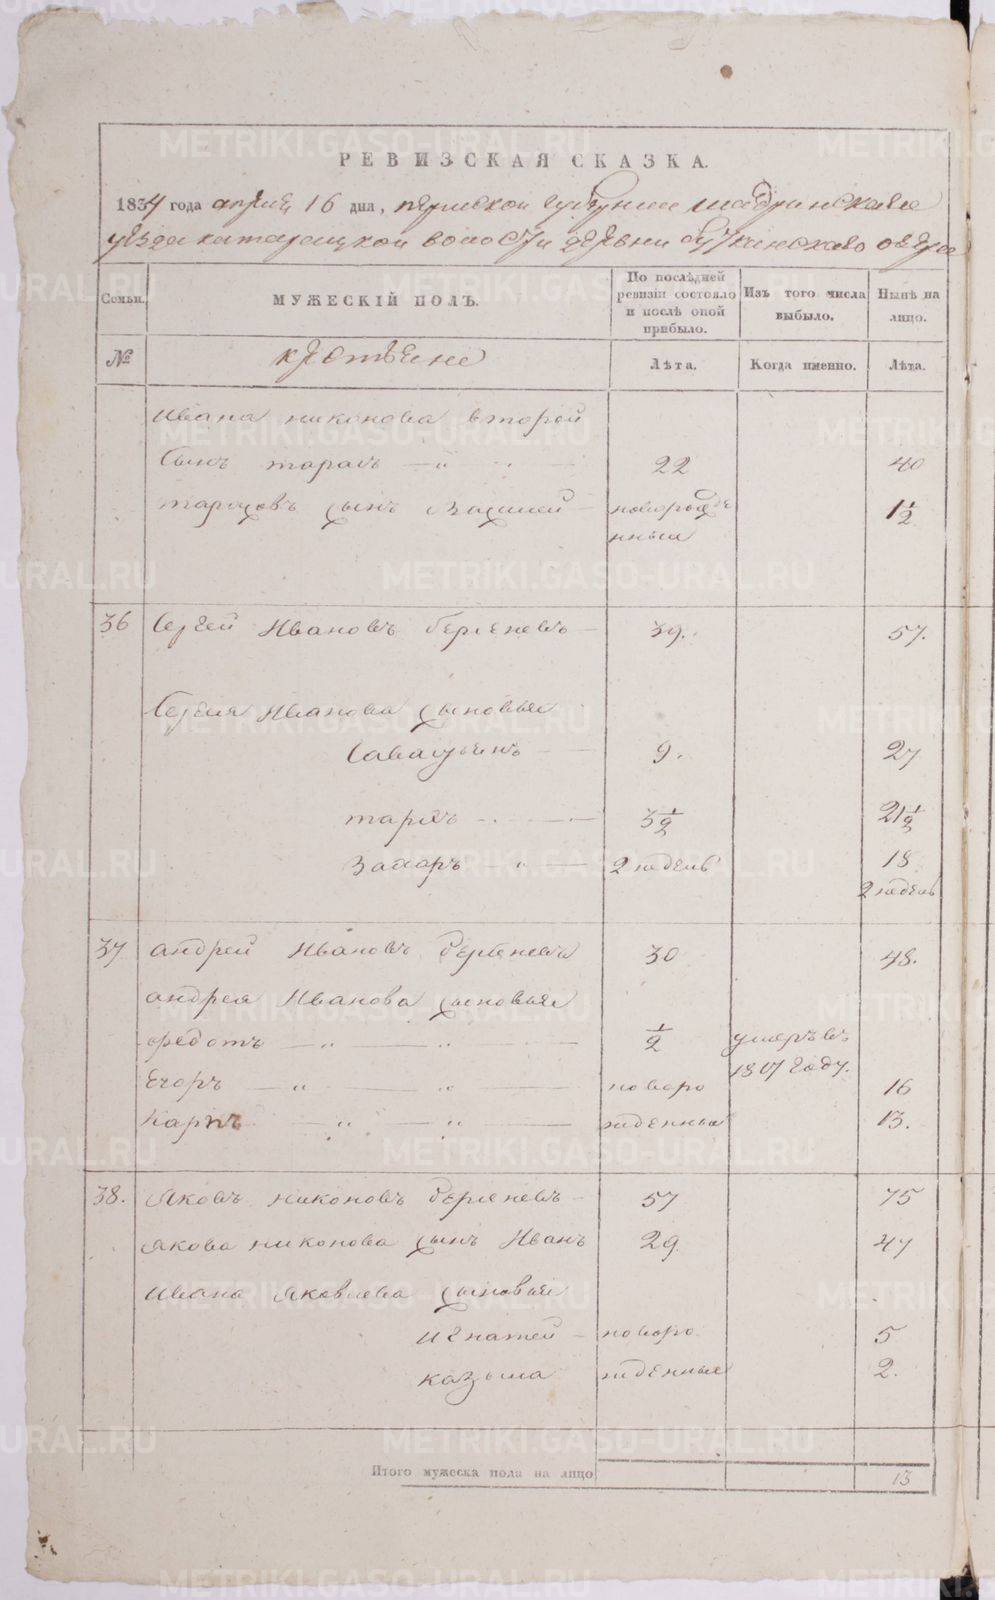 РЕВИЗСКАЯ СКАЗКА.
1834 года апреля 16 дня, пермской губернии шадринскаго
уезда катарацкой волости деревни буткинскаго озера
Семьи. МУЖЕСКІЙ ПОЛЪ. По послѣдней ревизіи состояло и послѣ оной прибыло. Изъ того числа выбыло. Нынѣ на лицо.
№ крестьяне Лѣта. Когда именно. Лѣта.
Ивана никонова второй
Сынъ тарасъ 22 40
тарасовъ сынъ новорожде 1 1/2
нныя
36 Сергей Ивановъ берсеневъ 39. 57.
Сергея Иванова сыновья
Савастьянъ 9. 27
тарасъ 3 1/2 21 1/2
Захаръ 2 недель 18
2 недель
37 андрей Ивановъ берсеневъ 30 48.
андрея Иванова сыновья
федотъ 1/2 умеръ въ
1817 году.
Егоръ новоро 16
Карпъ жденныя 13.
38. Яковъ никоновъ берсеневъ 57 75
якова никонова сынъ Иванъ 29 47
Ивана Яковлева сыновья
игнатей новоро 5
козьма жденныя 2.
Итого мужеска пола на лицо 13
METRIKI.GASO-URAL.RU